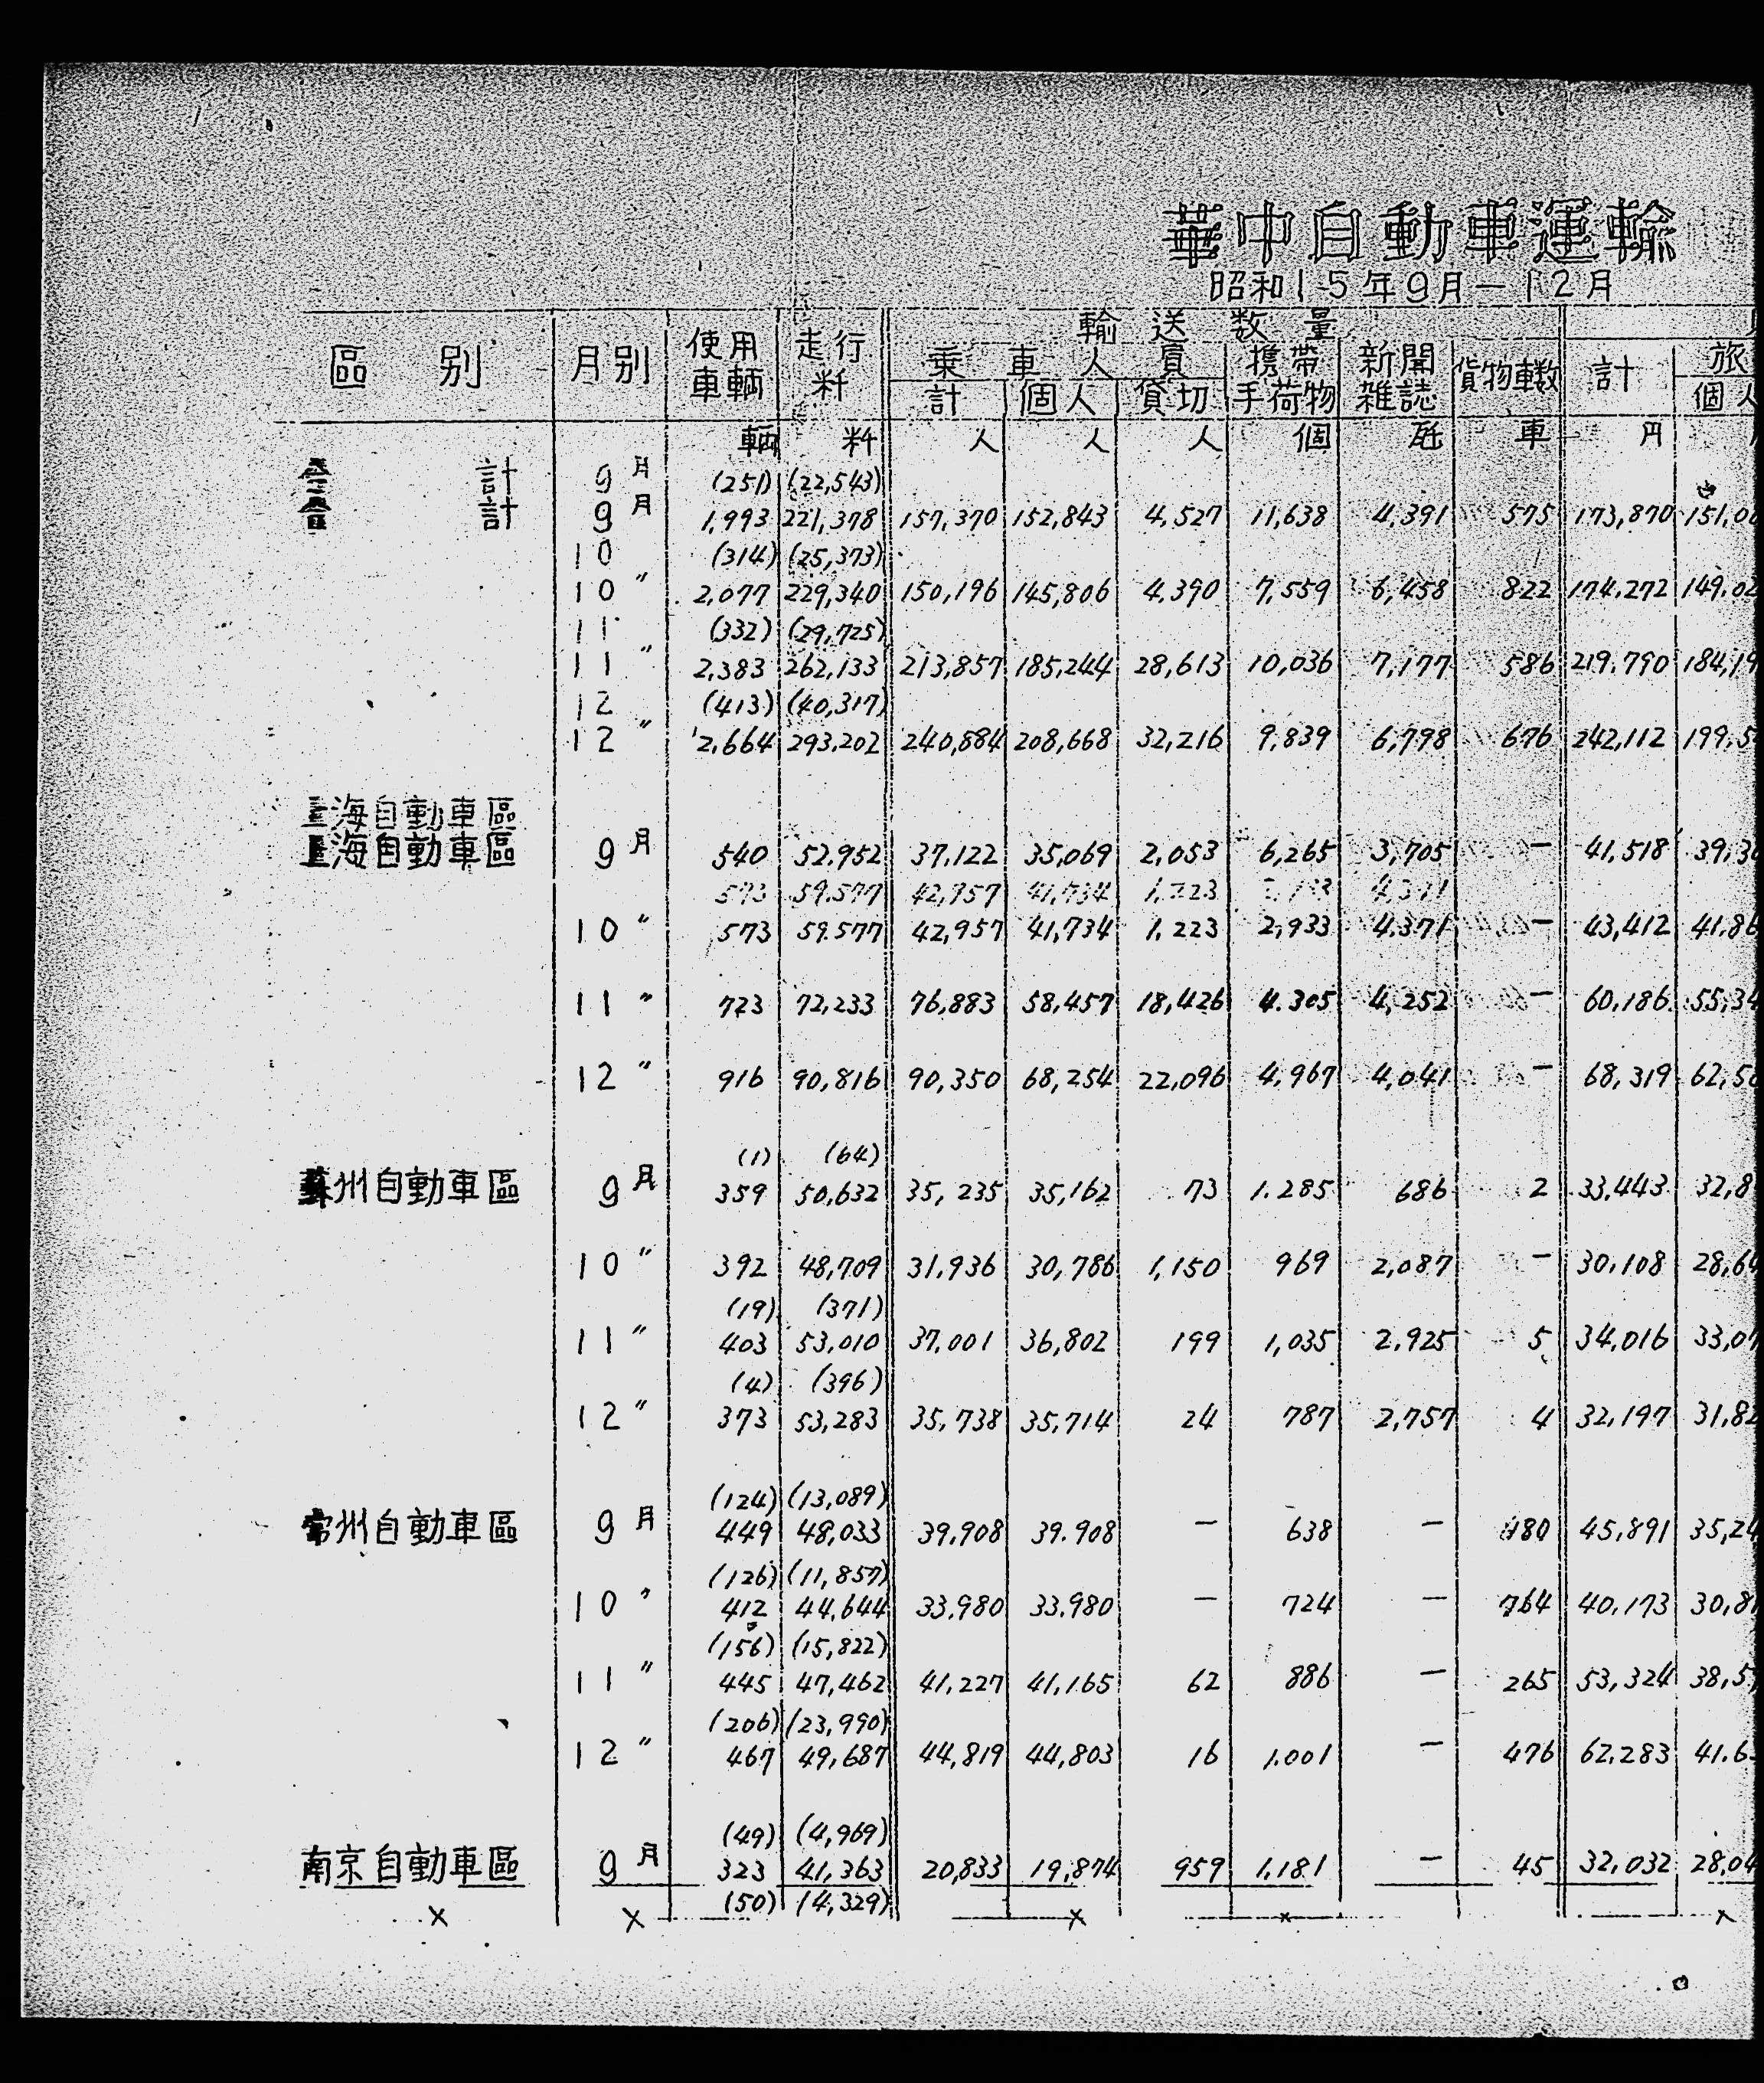 華中自動車運輸
昭和15年9月—12月
區 別 月別 使用車輌 走行粁 輸送数量 乗車人員 計 個人 貸切 携帯手荷物 新聞雑誌 貨物車数 計 旅 個人
輌 粁 人 人 人 個 瓩 車 円
合 計 9月 (251) (22,543)
合 計 9月 1,993 221,378 157,370 152,843 4,527 11,638 4,391 575 173,870
10 (314) (25,373)
10〃 2,077 229,340 150,196 145,806 4,390 7,559 6,458 822 174,272
11 (332) (29,725)
11〃 2,383 262,133 213,857 185,244 28,613 10,036 7,177 586 219,790
12 (413) (40,317)
12〃 2,664 293,202 240,884 208,668 32,216 9,839 6,798 676 242,112
上海自動車區
上海自動車區 9月 540 52,952 37,122 35,069 2,053 6,265 3,705 — 41,518
573 59,577 42,957 41,734 1,223
10〃 573 59,577 42,957 41,734 1,223 2,933 4,371 — 43,412
11〃 723 72,233 76,883 58,457 18,426 4,305 4,252 — 60,186
12〃 916 90,816 90,350 68,254 22,096 4,967 4,041 — 68,319
(1) (64)
蘇州自動車區 9月 359 50,632 35,235 35,162 73 1,285 686 2 33,443
10〃 392 48,709 31,936 30,786 1,150 969 2,087 — 30,108
(19) (371)
11〃 403 53,010 37,001 36,802 199 1,035 2,925 5 34,016
(4) (396)
12〃 373 53,283 35,738 35,714 24 787 2,757 4 32,197
(124) (13,089)
常州自動車區 9月 449 48,033 39,908 39,908 — 638 — 45,891
(126) (11,857)
10〃 412 44,644 33,980 33,980 — 724 — 764 40,173
(156) (15,822)
11〃 445 47,462 41,227 41,165 62 886 — 265 53,324
(206) (23,990)
12〃 467 49,687 44,819 44,803 16 1,001 — 476 62,283
(49) (4,969)
南京自動車區 9月 323 41,363 20,833 19,874 959 1,181 — 45 32,032
(50) (4,329)